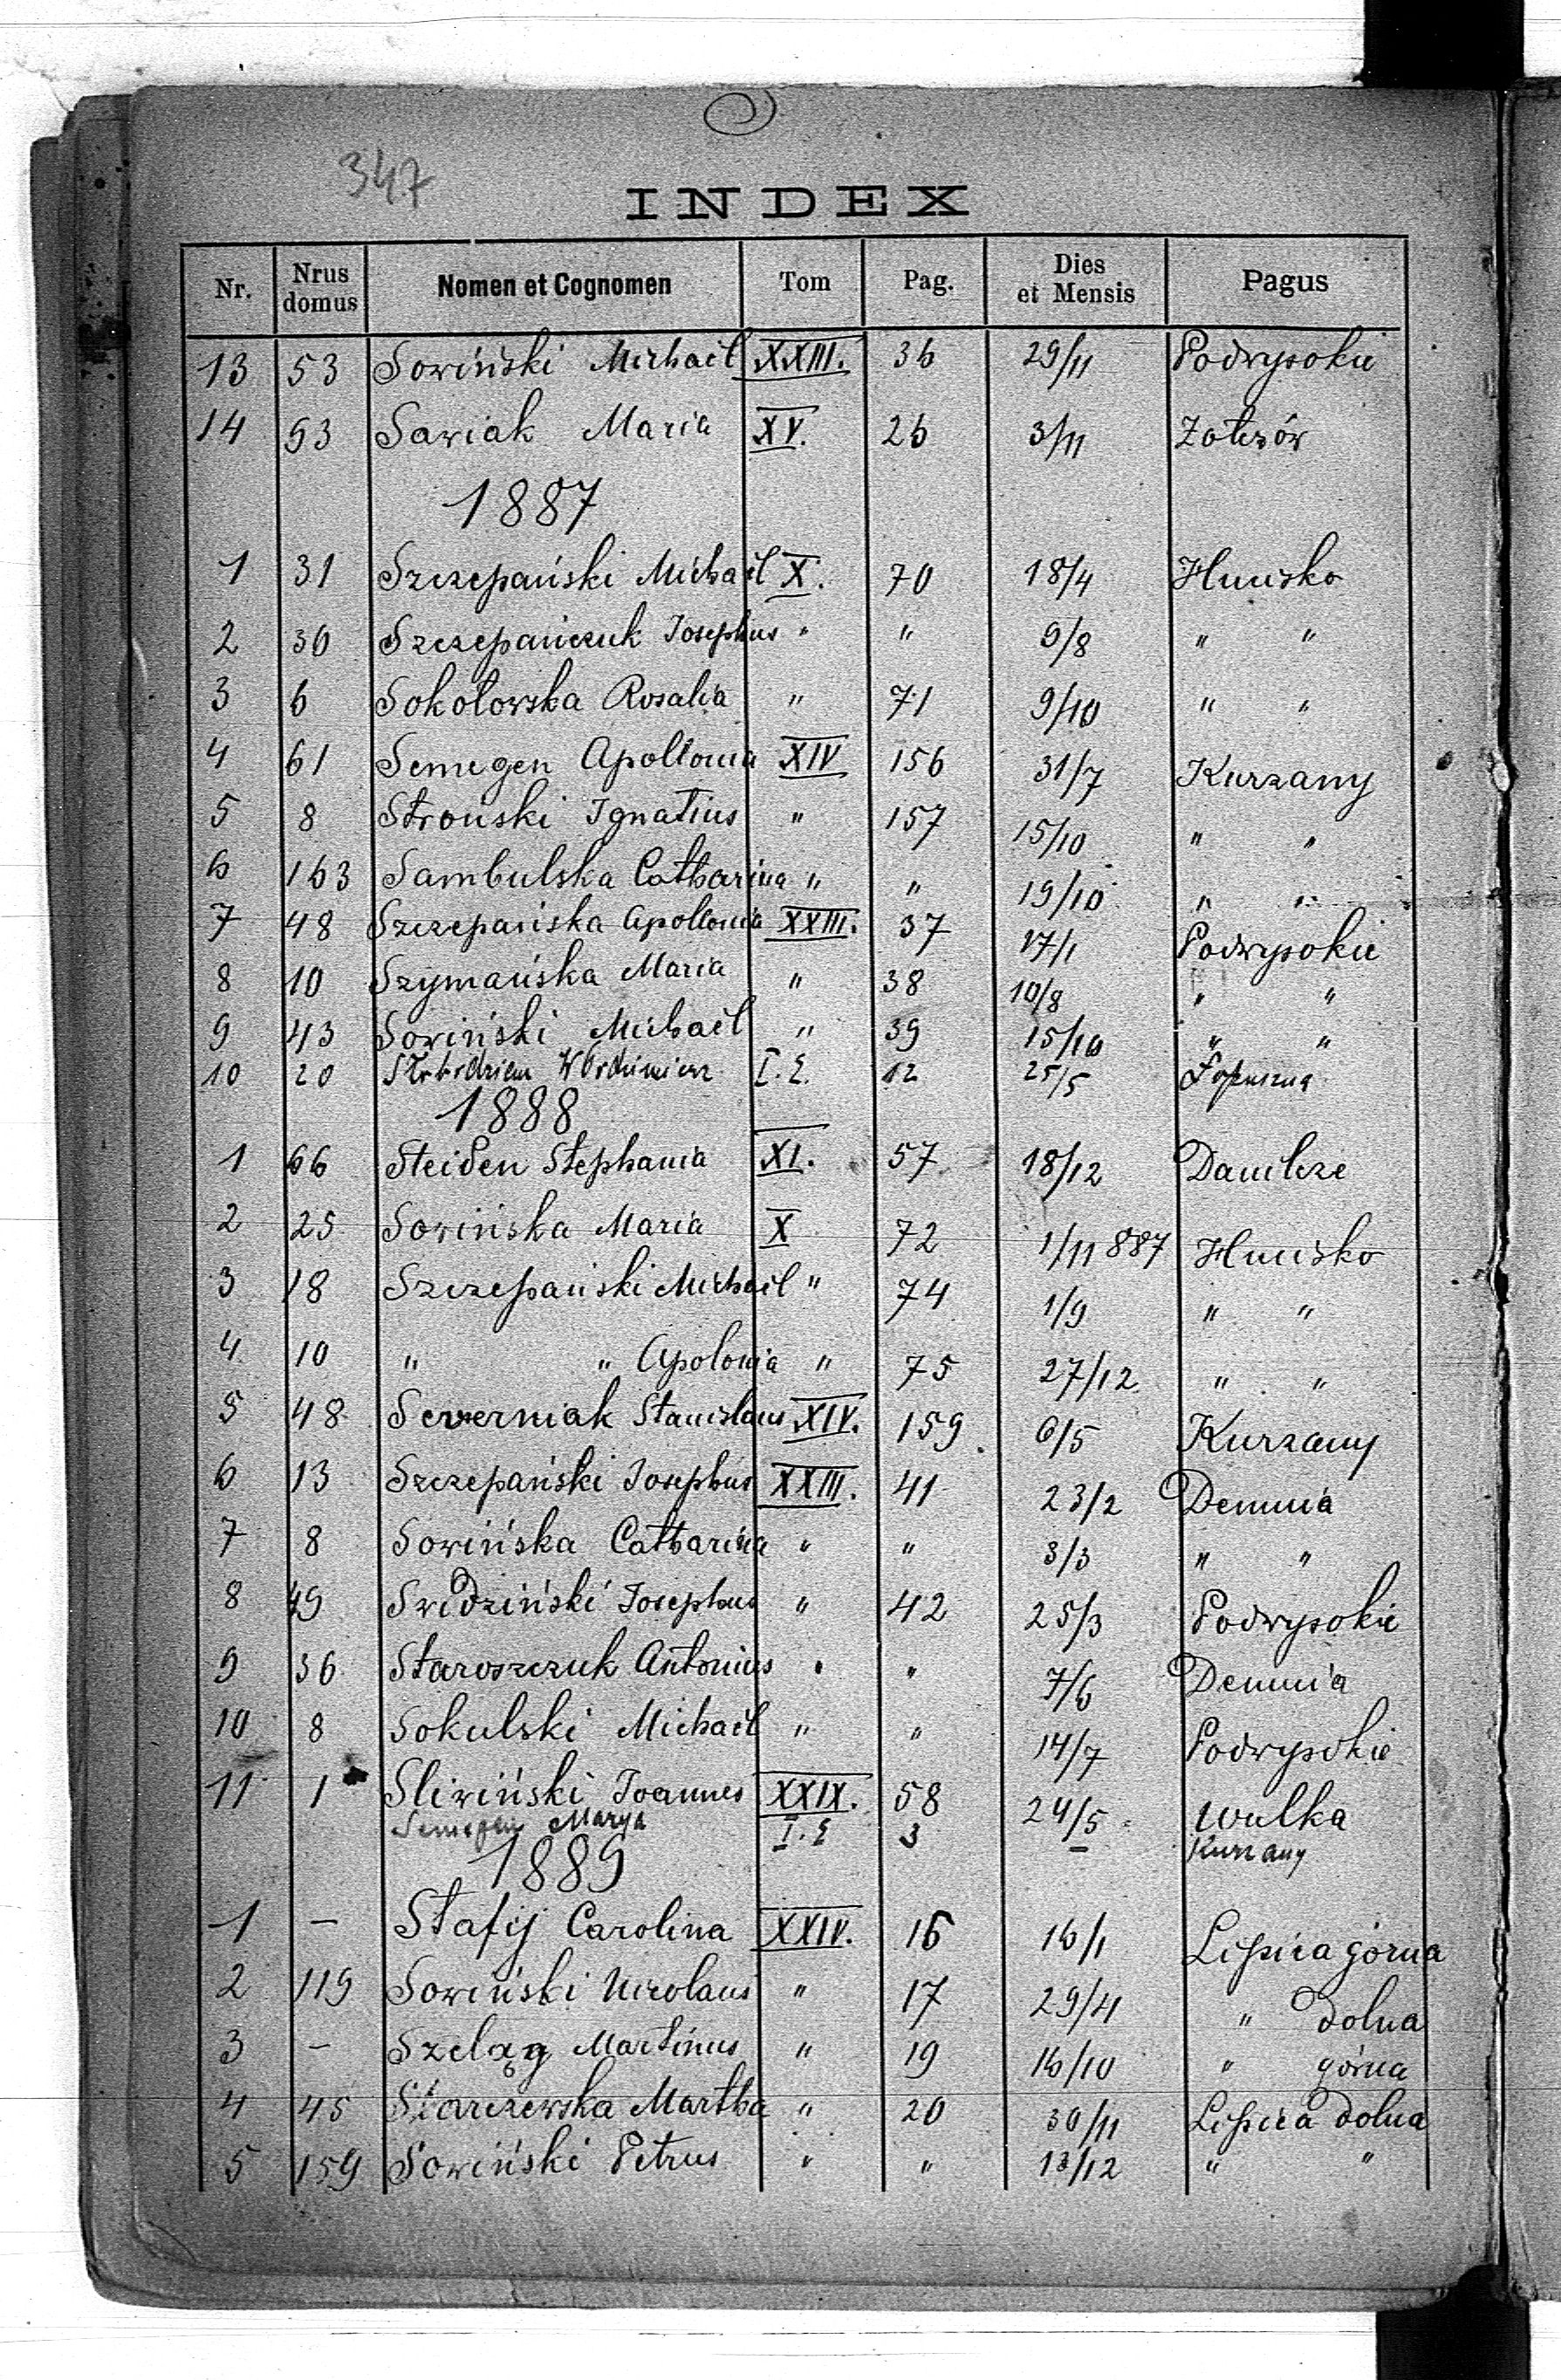 347
INDEX
Nr. Nrus domus Nomen et Cognomen Tom Pag. Dies et Mensis Pagus
13 53 Sowiński Michaël XXIII. 36 29/11 Podwysokie
14 53 Sawiak Maria XV. 26 3/11
1887
1 31 Szczepański Michaël X. 70 18/4 Hnisko
2 30 Szczepańczuk Josephus " " 9/8 " "
3 6 Sokołowska Rosalia " 71 9/10 " "
4 61 Semegen Apollonia XIV 156 31/7 Kurzany
5 8 Stroński Ignatius " 157 15/10 " "
6 163 Sambulska Catharina " " 19/10 " "
7 48 Szczepańska Apollonia XXIII. 37 17/1 Podwysokie
8 10 Szymańska Maria " 38 10/8 " "
9 43 Sowiński Michaël " 39 15/10 " "
10 20 I. E. 12 25/5
1888
1 66 Steiden Stephania XI. 57 18/12 Danilcze
2 25 Sowińska Maria X 72 1/11 887 Hnisko
3 18 Szczepański Michaël " 74 1/9 " "
4 10 " " Apolonia " 75 27/12 " "
5 48 Severniak Stanislaus XIV. 159 6/5 Kurzany
6 13 Szczepański Josephus XXIII. 41 23/2 Demnia
7 8 Sowińska Catharina " " 3/3 " "
8 49 Swidziński Josephus " 42 25/3 Podwysokie
9 36 Staroszczuk Antonius " " 7/6 Demnia
10 8 Sokulski Michaël " " 14/7 Podwysokie
11 1 Sliwiński Joannes XXIX. 58 24/5 Wulka
Semegen Marya I. E 3 – Kurzany
1889
1 – Stafij Carolina XXIV. 16 16/1 Lipica górna
2 119 Sowiński Nicolaus " 17 29/4 " dolna
3 – Szeląg Martinus " 19 16/10 " górna
4 45 Starczewska Martha " 20 30/11 Lipica dolna
5 159 Sowiński Petrus " " 13/12 " "